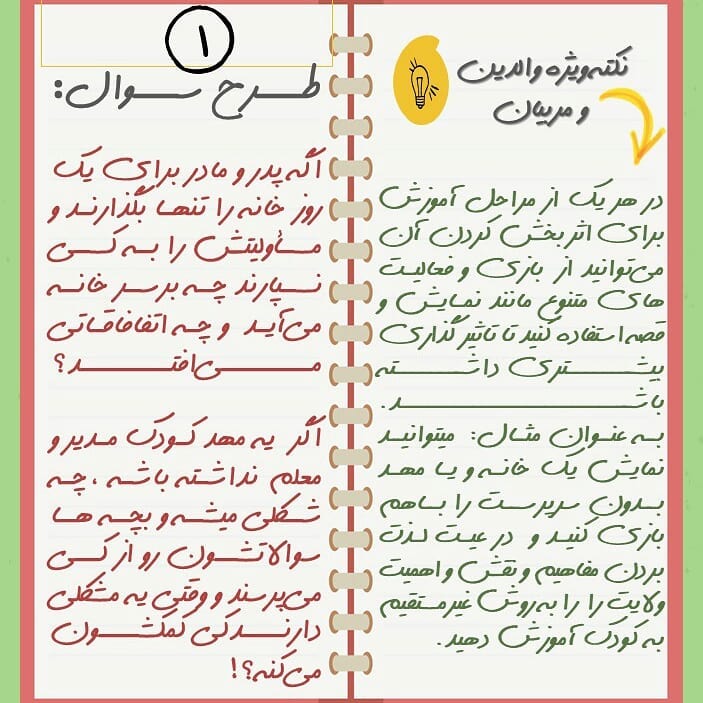 نکته ویژه والدین
و مربیان
در هر یک از مراحل آموزش
برای اثر بخش کردن آن
می‌توانید از بازی و فعالیت
های متنوع مانند نمایش و
قصه استفاده کنید تا تاثیر گذاری
بیشتری داشته
باشد.
به عنوان مثال: میتوانید
نمایش یک خانه و یا مهد
بدون سرپرست را باهم
بازی کنید و در عیت لذت
بردن مفاهیم و نقش و اهمیت
ولایت را را به روش غیر مستقیم
به کودک آموزش دهید.
۱
طرح سوال:
اگه پدر و مادر برای یک
روز خانه را تنها بگذارند و
مسأولیتش را به کسی
نسپارند چه بر سر خانه
می‌آید و چه اتفافاقاتی
می‌افتد؟
اگر یه مهد کودک مدیر و
معلم نداشته باشه، چه
شکلی میشه و بچه ها
سوالاتشون رو از کسی
می‌پرسند و وقتی یه مشکلی
دارند کی کمکشون
می‌کنه؟!